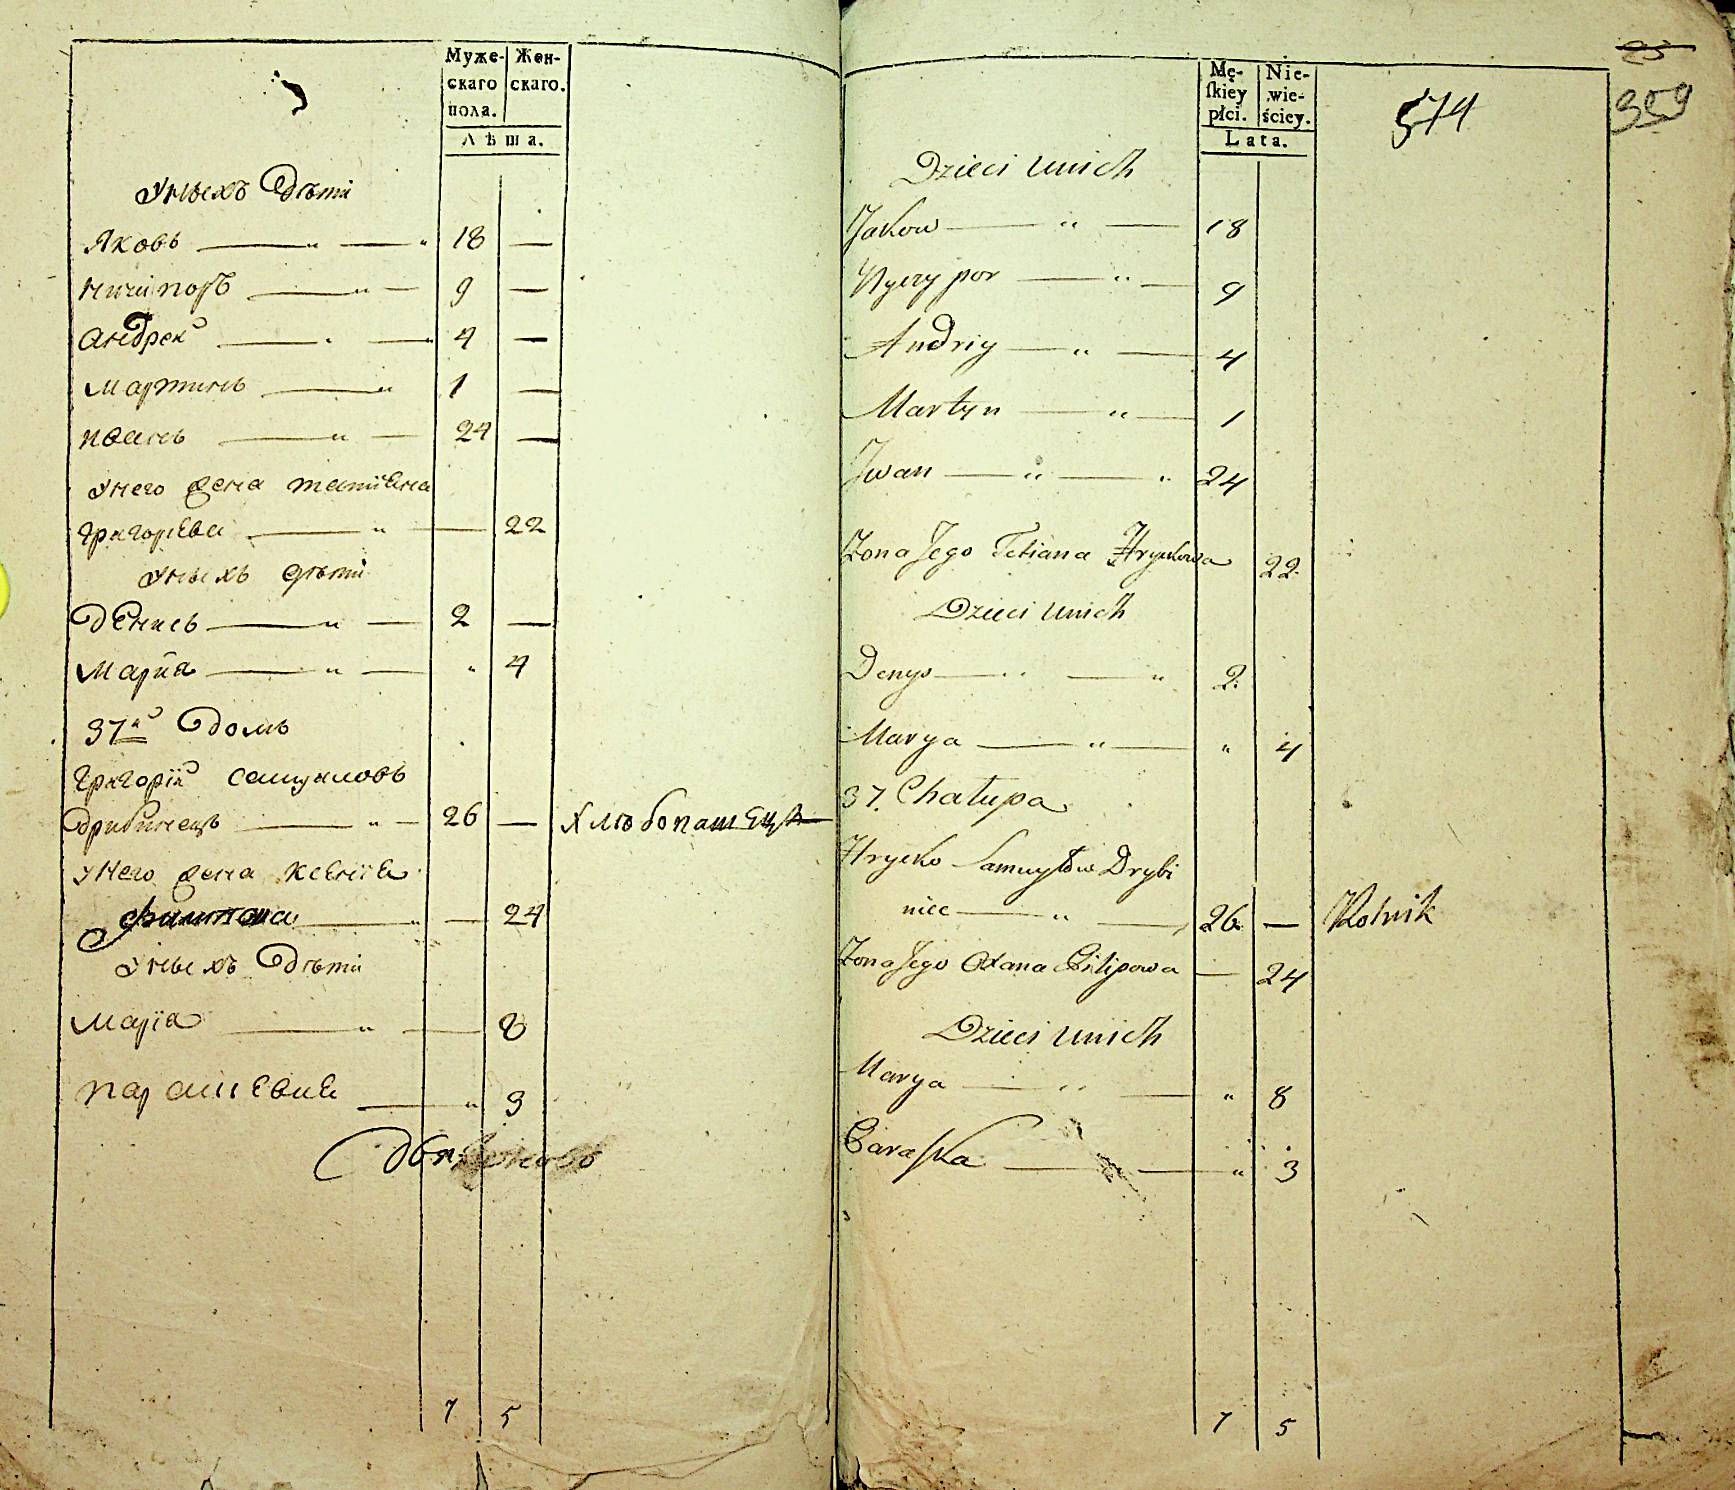 Муже- Жен-
скаго скаго.
пола.
Лѣта.
Унихъ Дѣти
Яковъ — " — " 18 —
Ничипоръ — " — 9 —
Андрей — " — 4 —
Мартинъ — " 1 —
Иванъ — " — 24 —
Унего жена татиѣна
григорѣва — " — 22
Унихъ дѣти
Денисъ — " — 2 —
Марйа — " — " 4
37й Домъ
Григорій Самуиловъ
Дрибинецъ — " — 26 — Хлѣбопашецъ
Унего жена Ксеніѣ
Филипова — " — 24
Унихъ Дѣти
Маріа — " — 8
параскевиѣ — " 3
7 5
25
359
574
Mę- Nie-
skiey wie-
płci. ściey.
Lata.
Dzieci unich
Jakow — " — 18
Nyczypor — " — 9
Andriy — " — 4
Martyn — " — 1
Jwan — " — " 24
Zona Jego Tetiana Hryckowa 22.
Dzieci unich
Denys — " — " 2.
Marya — " — " 4
37. Chałupa
Hrycko Samuyłow Drybi
niec — " — 26. — Rolnik
Zona Jego Oxana Filipowa — 24
Dzieci unich
Marya — " — " 8
Paraska — — " 3
7 5